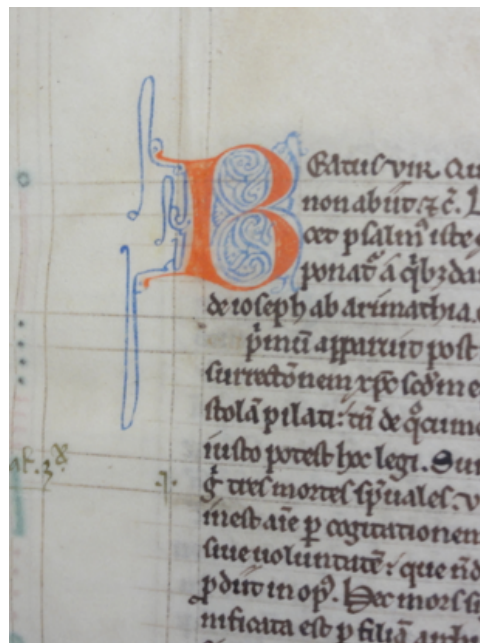 Beatus vir. Qui
non abiit. ⁊ c̄. L
cet psalm̄ iste
ponat᷑ a q̇bꝫdā
de ioseph ab arimathia.
ṗmū apparuit post
surrectōnem xp̄o scdm e
stolā pilati: tn̄ de q̊cumq
iusto potest hoc legi. Sun
g̊ tres mortes sp̄uales. v
inest aīe ꝑ cogitationem
siue uoluntatē: que nō
ꝓdiit in op̄. Hec mors si
nificata est ꝑ filiā